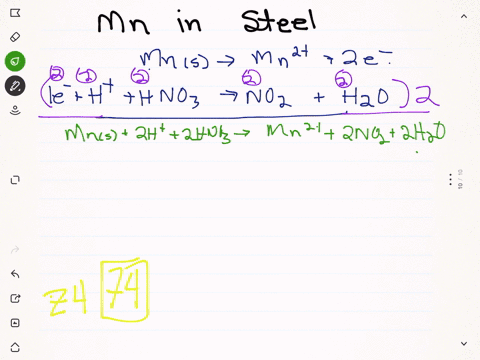 Mn in Steel
Mn(s) → Mn²⁺ + 2e⁻
2 2 2 2 2
(1e⁻ + H⁺ + HNO₃ → NO₂ + H₂O)2
Mn(s) + 2H⁺ + 2HNO₃ → Mn²⁺ + 2NO₂ + 2H₂O
19 / 19
74